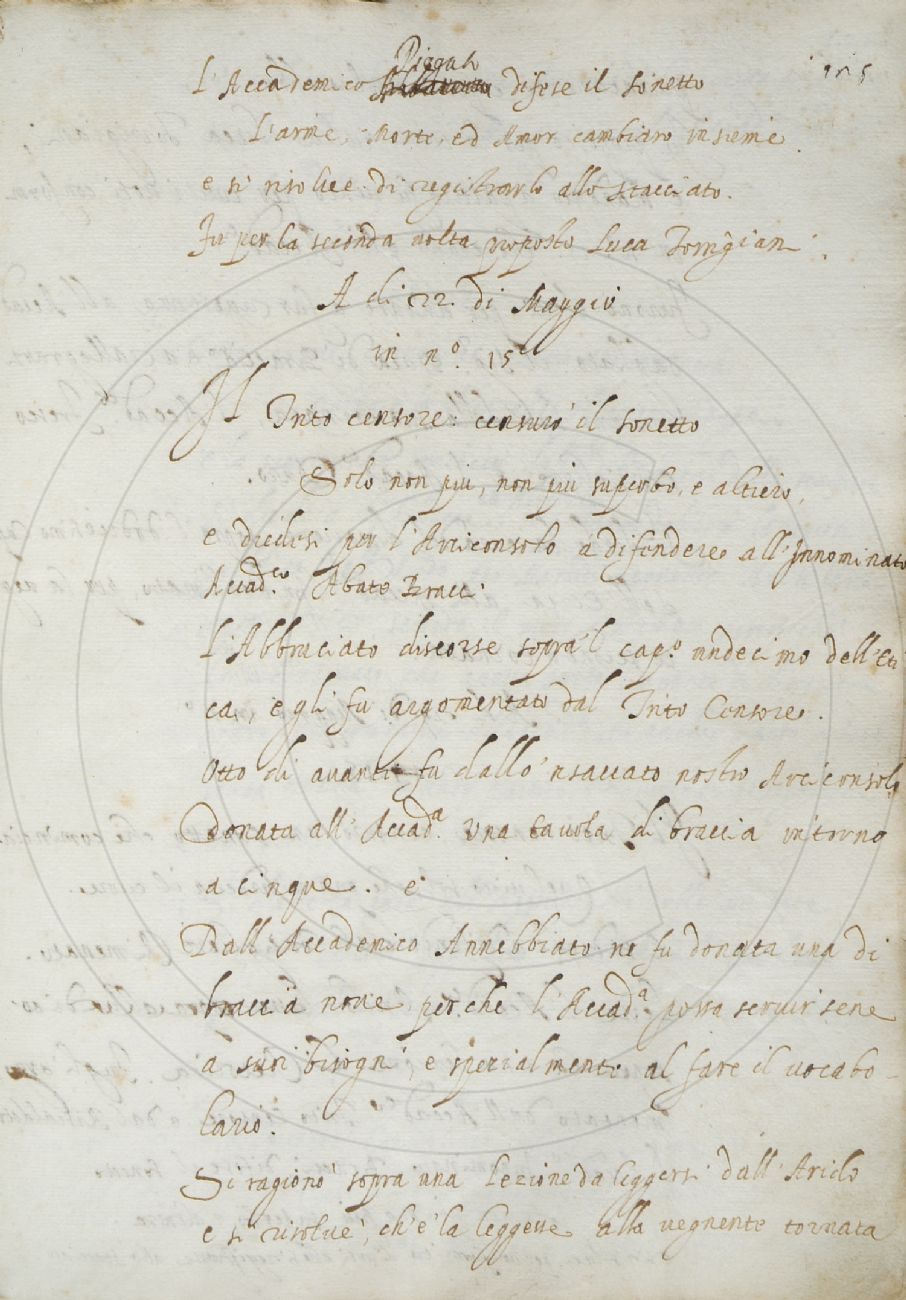 L'Accademico difese il sonetto
L'arme, Morte, ed Amor cambiaro insieme
e si risolvè di registrarlo allo stacciato.
Fu per la seconda volta proposto Luca
A di 22. di Maggio
in n.º 15
Il Trito censore: censurò il sonetto
Solo non più, non più superbo, e altiero,
e diedesi per l'Arciconsolo a difendere all'Innominato
Accad.co Abate Bracci
L'Abbruciato discorse sopra'l cap.º undecimo dell'Eti
ca, e gli fu argomentato dal Trito Censore.
Otto dì avanti fu dallo'nsaccato nostro Arciconsolo
Donata all'Accad.ª una tavola di braccia intorno
a cinque. e
Dall'Accademico Annebbiato ne fu donata una di
braccia nove perche l'Accad.ª possa servirsene
a suoi bisogni, e spezialmente al fare il vocabo-
lario.
Si ragionò sopra una Lezione da leggersi dall'Ariclo
e si risolvè, ch'e' la leggesse alla vegnente tornata